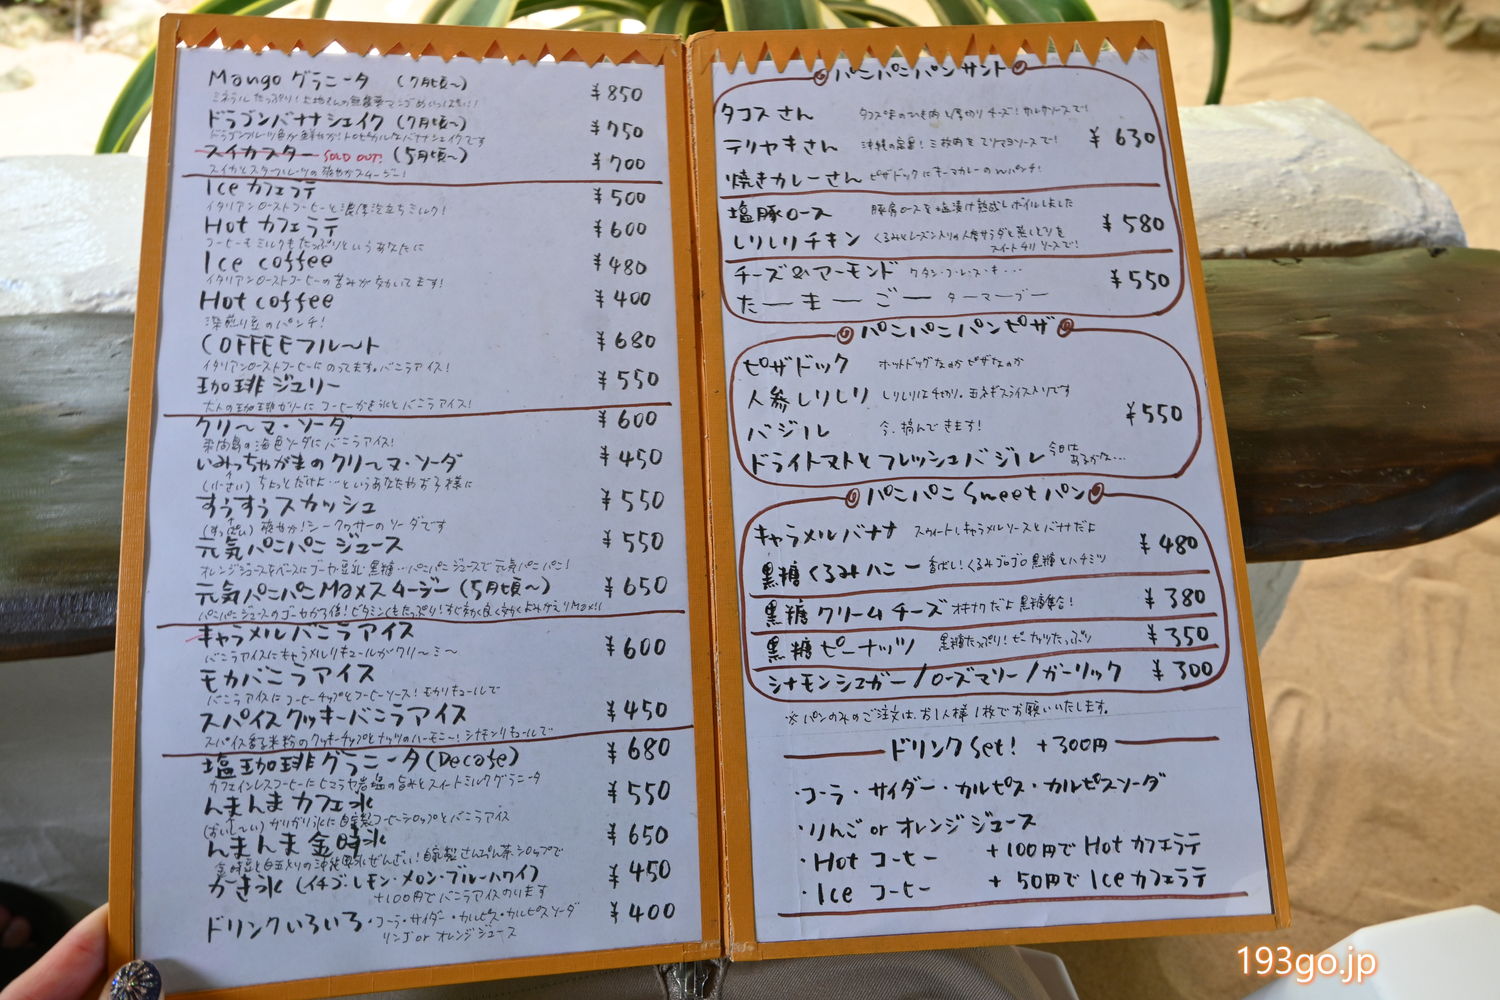 Mango グラニータ （7月頃〜） ¥850
ドラゴンバナナシェイク（7月頃〜） ¥750
ドラゴンフルーツ色が鮮やか！トロピカルなバナナシェイクです
スイカスター SOLD OUT! （5月頃〜） ¥700
スイカとスターフルーツの爽やかスムージー！
Ice カフェラテ ¥500
イタリアンローストコーヒーと濃厚泡立ちミルク！
Hot カフェラテ ¥600
コーヒーもミルクもたっぷりというあなたに
Ice coffee ¥480
イタリアンローストコーヒーの苦みが効いてます！
Hot coffee ¥400
深煎り豆のパンチ！
COFFEEフル〜ト ¥680
イタリアンローストコーヒーにのってます。バニラアイス！
珈琲ジュリー ¥550
大人の珈琲ゼリーにコーヒーかき氷とバニラアイス！
クリ〜マ・ソーダ ¥600
古宇利島の海色ソーダにバニラアイス！
いみっちゃがまのクリ〜マ・ソーダ ¥450
（小さい）ちょっとだけよ…というあなたやお子様に
すうすうスカッシュ ¥550
（すっぱい）爽やか！シークヮサーのソーダです
元気パニパニジュース ¥550
オレンジジュースをベースにゴーヤ・豆乳・黒糖…パニパニジュースで元気パニパニ！
元気パニパニMaxスムージー（5月頃〜） ¥650
キャラメルバニラアイス ¥600
バニラアイスにキャラメルリキュールがクリ〜ミ〜
モカバニラアイス
バニラアイスにコーヒーチップとコーヒーソース！モカリキュールで
スパイスクッキーバニラアイス ¥450
スパイス香る米粉のクッキーチップとナッツのハーモニー！シナモンリキュールで
塩珈琲グラニータ（Decafe） ¥680
カフェインレスコーヒーにヒマラヤ岩塩の旨みとスイートミルクグラニータ
んまんまカフェ氷 ¥550
（おいし〜い）かりかり氷に自家製コーヒーシロップとバニラアイス
んまんま金時氷 ¥650
金時豆と白玉入りの沖縄風氷ぜんざい！自家製さんぴん茶シロップで
かき氷（イチゴ・レモン・メロン・ブルーハワイ） ¥450
+100円でバニラアイスのります
ドリンクいろいろ・コーラ・サイダー・カルピス・カルピスソーダ ¥400
リンゴ or オレンジジュース
パニパニパンサンド
タコスさん タコス味のひき肉と厚切りチーズ！サルサソースで！
テリヤキさん 沖縄の定番！三枚肉をテリマヨソースで！ ¥630
焼きカレーさん ピザドックにキーマカレーのWパンチ！
塩豚ロース 豚肩ロースを塩漬け熟成しボイルしました
しりしりチキン くるみとレーズン入りの人参サラダと蒸しどりを ¥580
スイートチリソースで！
チーズ&アーモンド ケタン・フ・レ・ス・キ・・・ ¥550
たーまーごー ターマーゴー
パニパニパンピザ
ピザドック ホットドッグなのかピザなのか
人参しりしり しりしりは千切り。玉ネギスライス入りです
バジル 今、摘んできます！ ¥550
ドライトマトとフレッシュバジル 今日は
あるかな…
パニパニ Sweetパン
キャラメルバナナ スウィートしキャラメルソースとバナナだよ ¥480
黒糖くるみハニー 香ばし！くるみゴロゴロ黒糖とハチミツ
黒糖クリームチーズ オキナワだよ黒糖集合！ ¥380
黒糖ピーナッツ 黒糖たっぷり！ピーナッツたっぷり ¥350
シナモンシュガー/ローズマリー/ガーリック ¥300
※パンのみのご注文は、お1人様1枚でお願いいたします。
ドリンクSet! +300円
・コーラ・サイダー・カルピス・カルピスソーダ
・りんご or オレンジジュース
・Hot コーヒー +100円で Hot カフェラテ
・Ice コーヒー + 50円で Ice カフェラテ
193go.jp